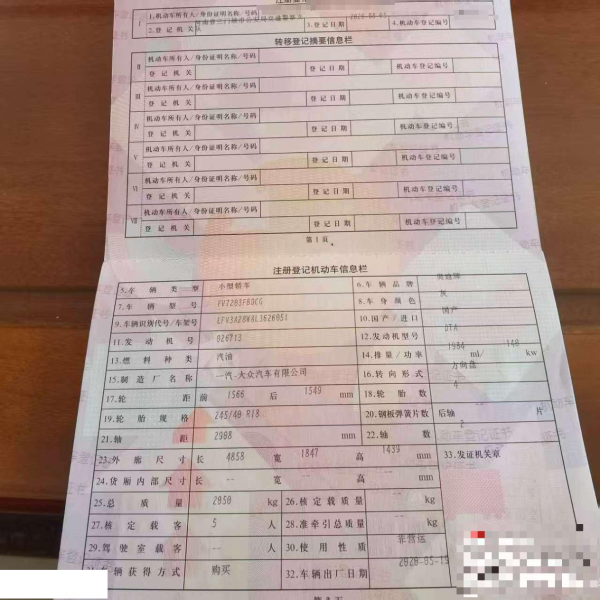 1.机动车所有人/身份证明名称/号码
I 2.登记机关 3.登记日期 2020-08-05 4.机动车登记编号
转移登记摘要信息栏
II 机动车所有人/身份证明名称/号码
登记机关 登记日期 机动车登记编号
III 机动车所有人/身份证明名称/号码
登记机关 登记日期 机动车登记编号
IV 机动车所有人/身份证明名称/号码
登记机关 登记日期 机动车登记编号
V 机动车所有人/身份证明名称/号码
登记机关 登记日期 机动车登记编号
VI 机动车所有人/身份证明名称/号码
登记机关 登记日期 机动车登记编号
VII 机动车所有人/身份证明名称/号码
登记机关 登记日期 机动车登记编号
第1页
注册登记机动车信息栏
5.车辆类型 小型轿车 6.车辆品牌
7.车辆型号 8.车身颜色 灰
9.车辆识别代号/车架号 10.国产/进口 国产
11.发动机号 026713 12.发动机型号 DTA
13.燃料种类 汽油 14.排量/功率 1984 ml/ 140 kw
15.制造厂名称 一汽-大众汽车有限公司 16.转向形式 方向盘
17.轮距 前 1566 后 1549 mm 18.轮胎数 4
19.轮胎规格 245/40 R18 20.钢板弹簧片数 后轴 片
21.轴距 2908 mm 22.轴数 2
23.外廓尺寸 长 4858 宽 1847 高 1439 mm 33.发证机关章
24.货厢内部尺寸 长 -- 宽 -- 高 -- mm
25.总质量 2050 kg 26.核定载质量 -- kg
27.核定载客 5 人 28.准牵引总质量 -- kg
29.驾驶室载客 -- 人 30.使用性质 非营运
车辆获得方式 购买 32.车辆出厂日期 2020-05-15